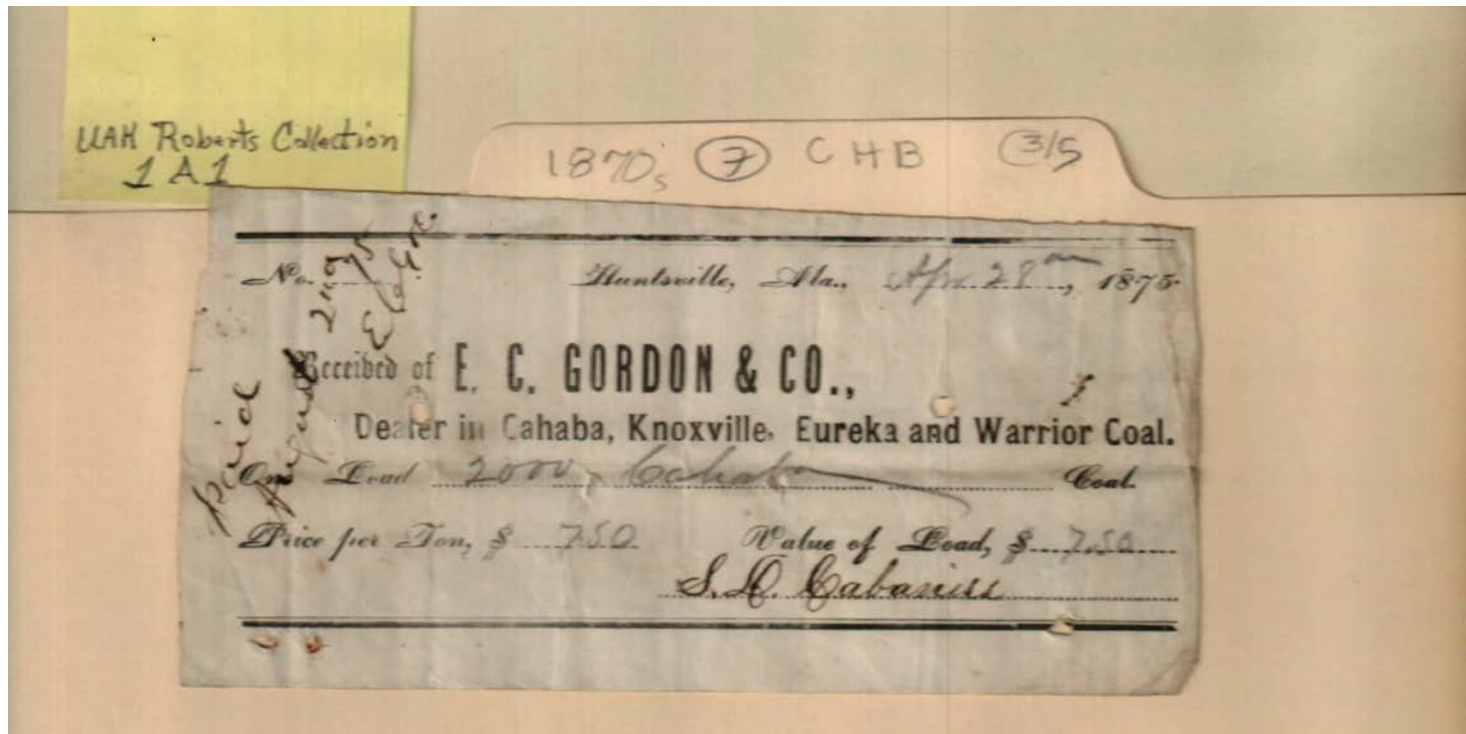 UAH Roberts Collection
1A1
1870s 7 CHB 3/5
No. Huntsville, Ala., Apr. 28, 1875
Received of E. C. GORDON & CO.,
Dealer in Cahaba, Knoxville, Eureka and Warrior Coal.
One Load 2000 Cahaba Coal.
Price per Ton, $ 7.50 Value of Load, $ 7.50
S. D. Cabaniss
paid
August 2nd 75